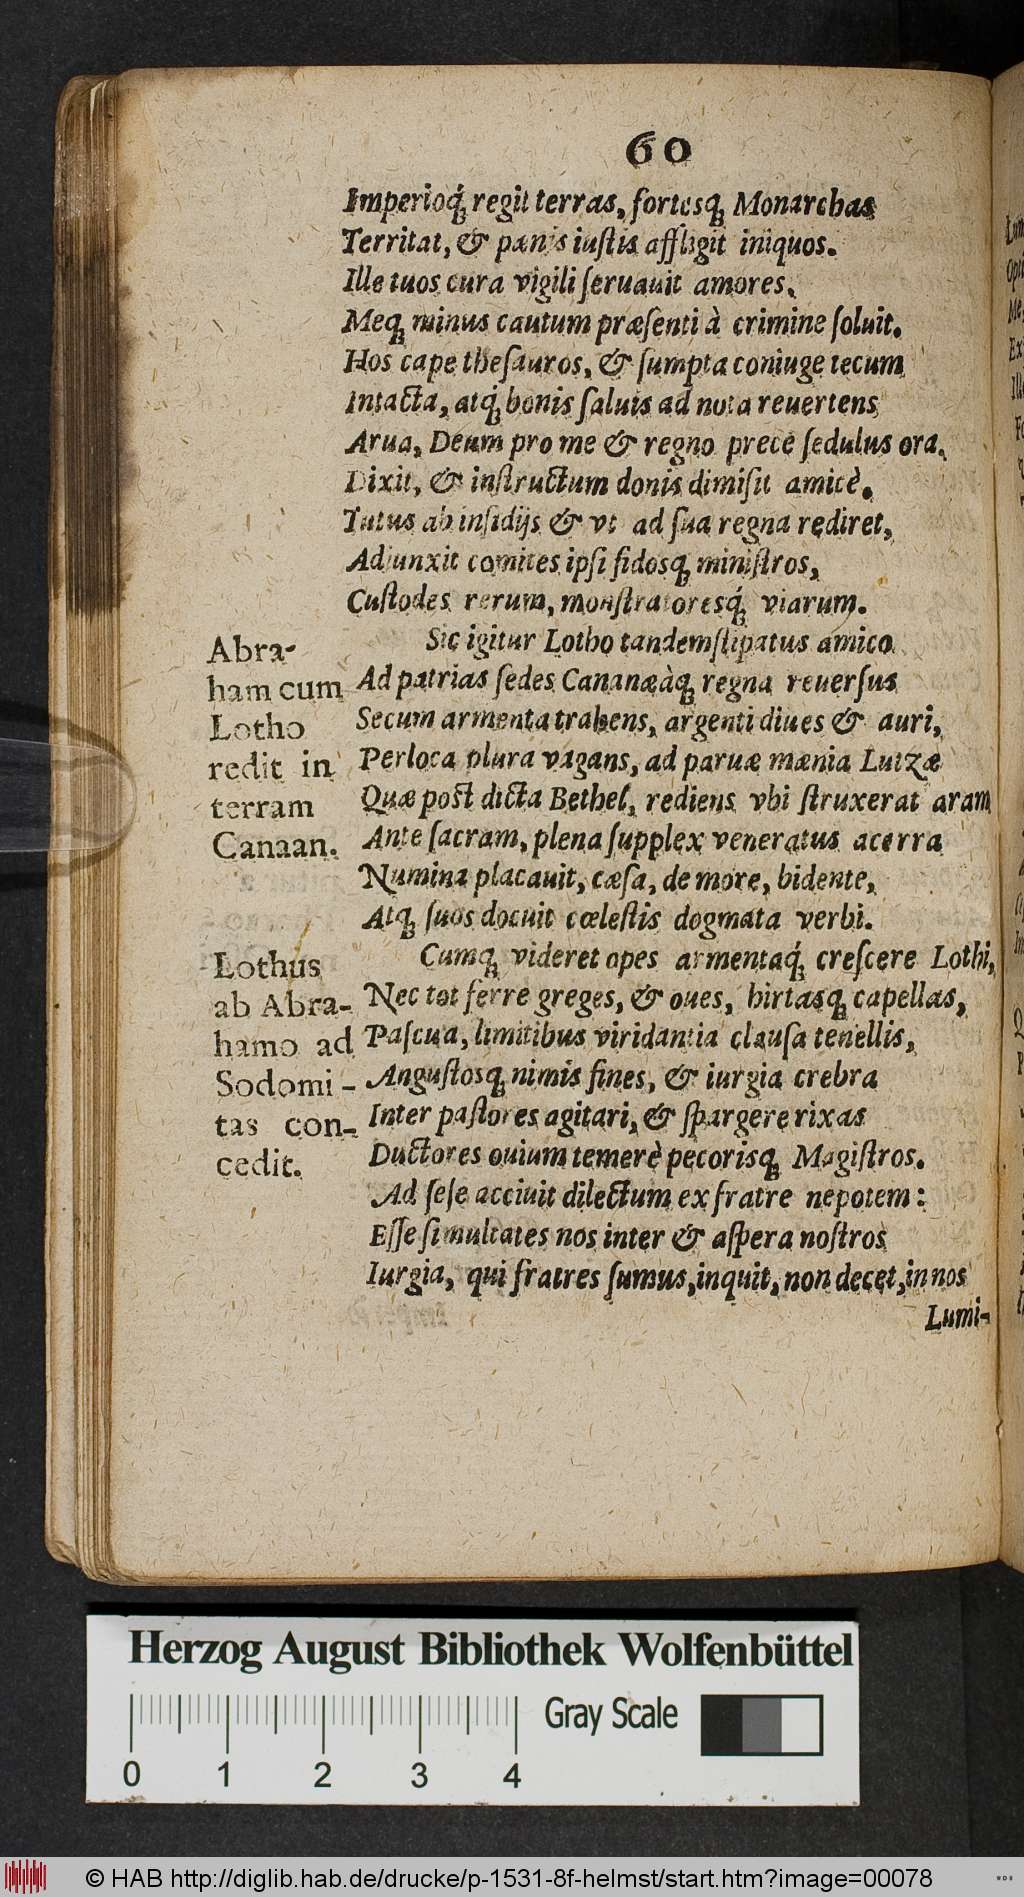 60
Imperioq́; regit terras, fortesq; Monarchas
Territat, & pœnis iuſtis affligit iniquos.
Ille tuos cura vigili ſeruauit amores,
Meq; minus cautum præſenti à crimine ſoluit.
Hos cape theſauros, & ſumpta coniuge tecum
Intacta, atq́; bonis ſaluis ad nota reuertens
Arua, Deum pro me & regno prece ſedulus ora.
Dixit, & inſtructum donis dimiſit amicè.
Tutus ab inſidijs & vt ad ſua regna rediret,
Adiunxit comites ipſi fidosq; miniſtros,
Cuſtodes rerum, monſtratoresq́; viarum.
Abra-
ham cum
Lotho
redit in
terram
Canaan.
Sic igitur Lotho tandem ſtipatus amico
Ad patrias ſedes Cananæàq; regna reuerſus
Secum armenta trahens, argenti diues & auri,
Per loca plura vagans, ad paruæ mœnia Luizæ
Quæ poſt dicta Bethel, rediens vbi ſtruxerat aram
Ante ſacram, plena ſupplex veneratus acerra
Numina placauit, cæſa, de more, bidente,
Atq; ſuos docuit cœleſtis dogmata verbi.
Lothus
ab Abra-
hamo ad
Sodomi-
tas con-
cedit.
Cumq; videret opes armentaq́; creſcere Lothi,
Nec tot ferre greges, & oues, hirtasq; capellas,
Paſcua, limitibus viridantia clauſa tenellis,
Anguſtosq; nimis fines, & iurgia crebra
Inter paſtores agitari, & ſpargere rixas
Ductores ouium temerè pecorisq; Magiſtros.
Ad ſeſe acciuit dilectum ex fratre nepotem:
Eſſe ſimultates nos inter & aſpera noſtros
Iurgia, qui fratres ſumus, inquit, non decet, in nos
Lumi-
Herzog August Bibliothek Wolfenbüttel
Gray Scale
0 1 2 3 4
© HAB http://diglib.hab.de/drucke/p-1531-8f-helmst/start.htm?image=00078